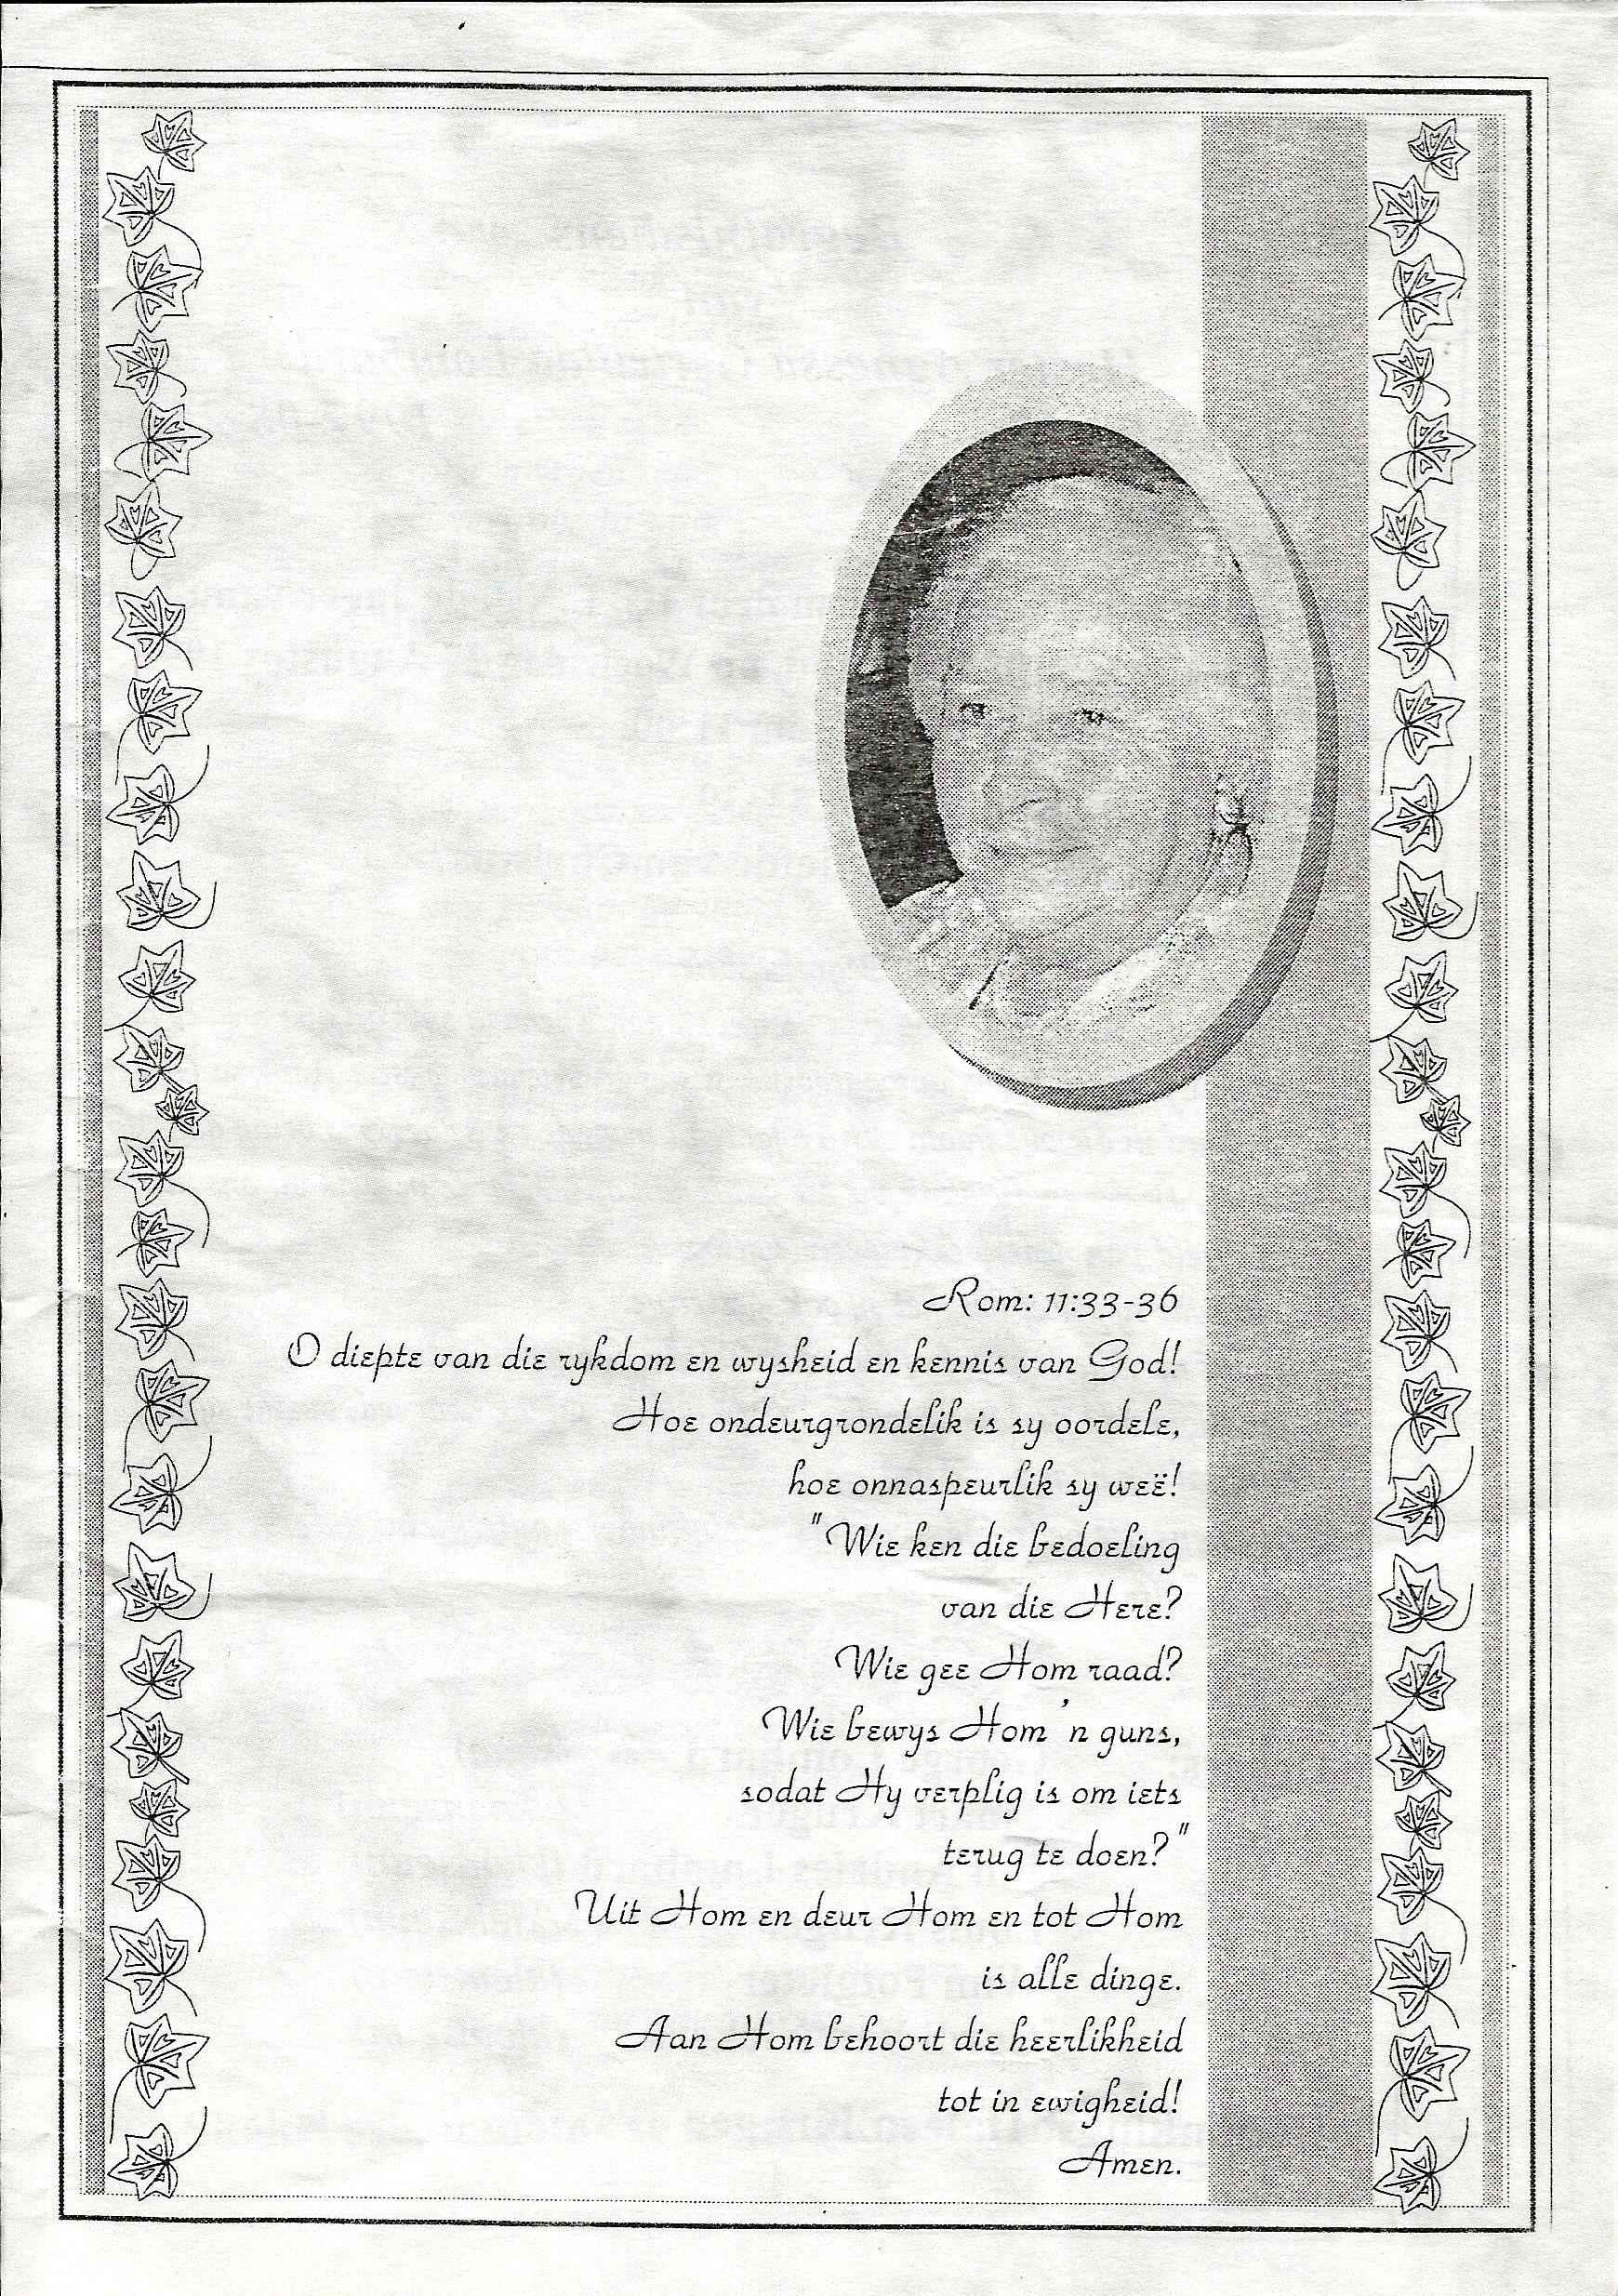 Rom: 11:33-36
O diepte van die rykdom en wysheid en kennis van God!
Hoe ondeurgrondelik is sy oordele,
hoe onnaspeurlik sy weë!
"Wie ken die bedoeling
van die Here?
Wie gee Hom raad?
Wie bewys Hom 'n guns,
sodat Hy verplig is om iets
terug te doen?"
Uit Hom en deur Hom en tot Hom
is alle dinge.
Aan Hom behoort die heerlikheid
tot in ewigheid!
Amen.